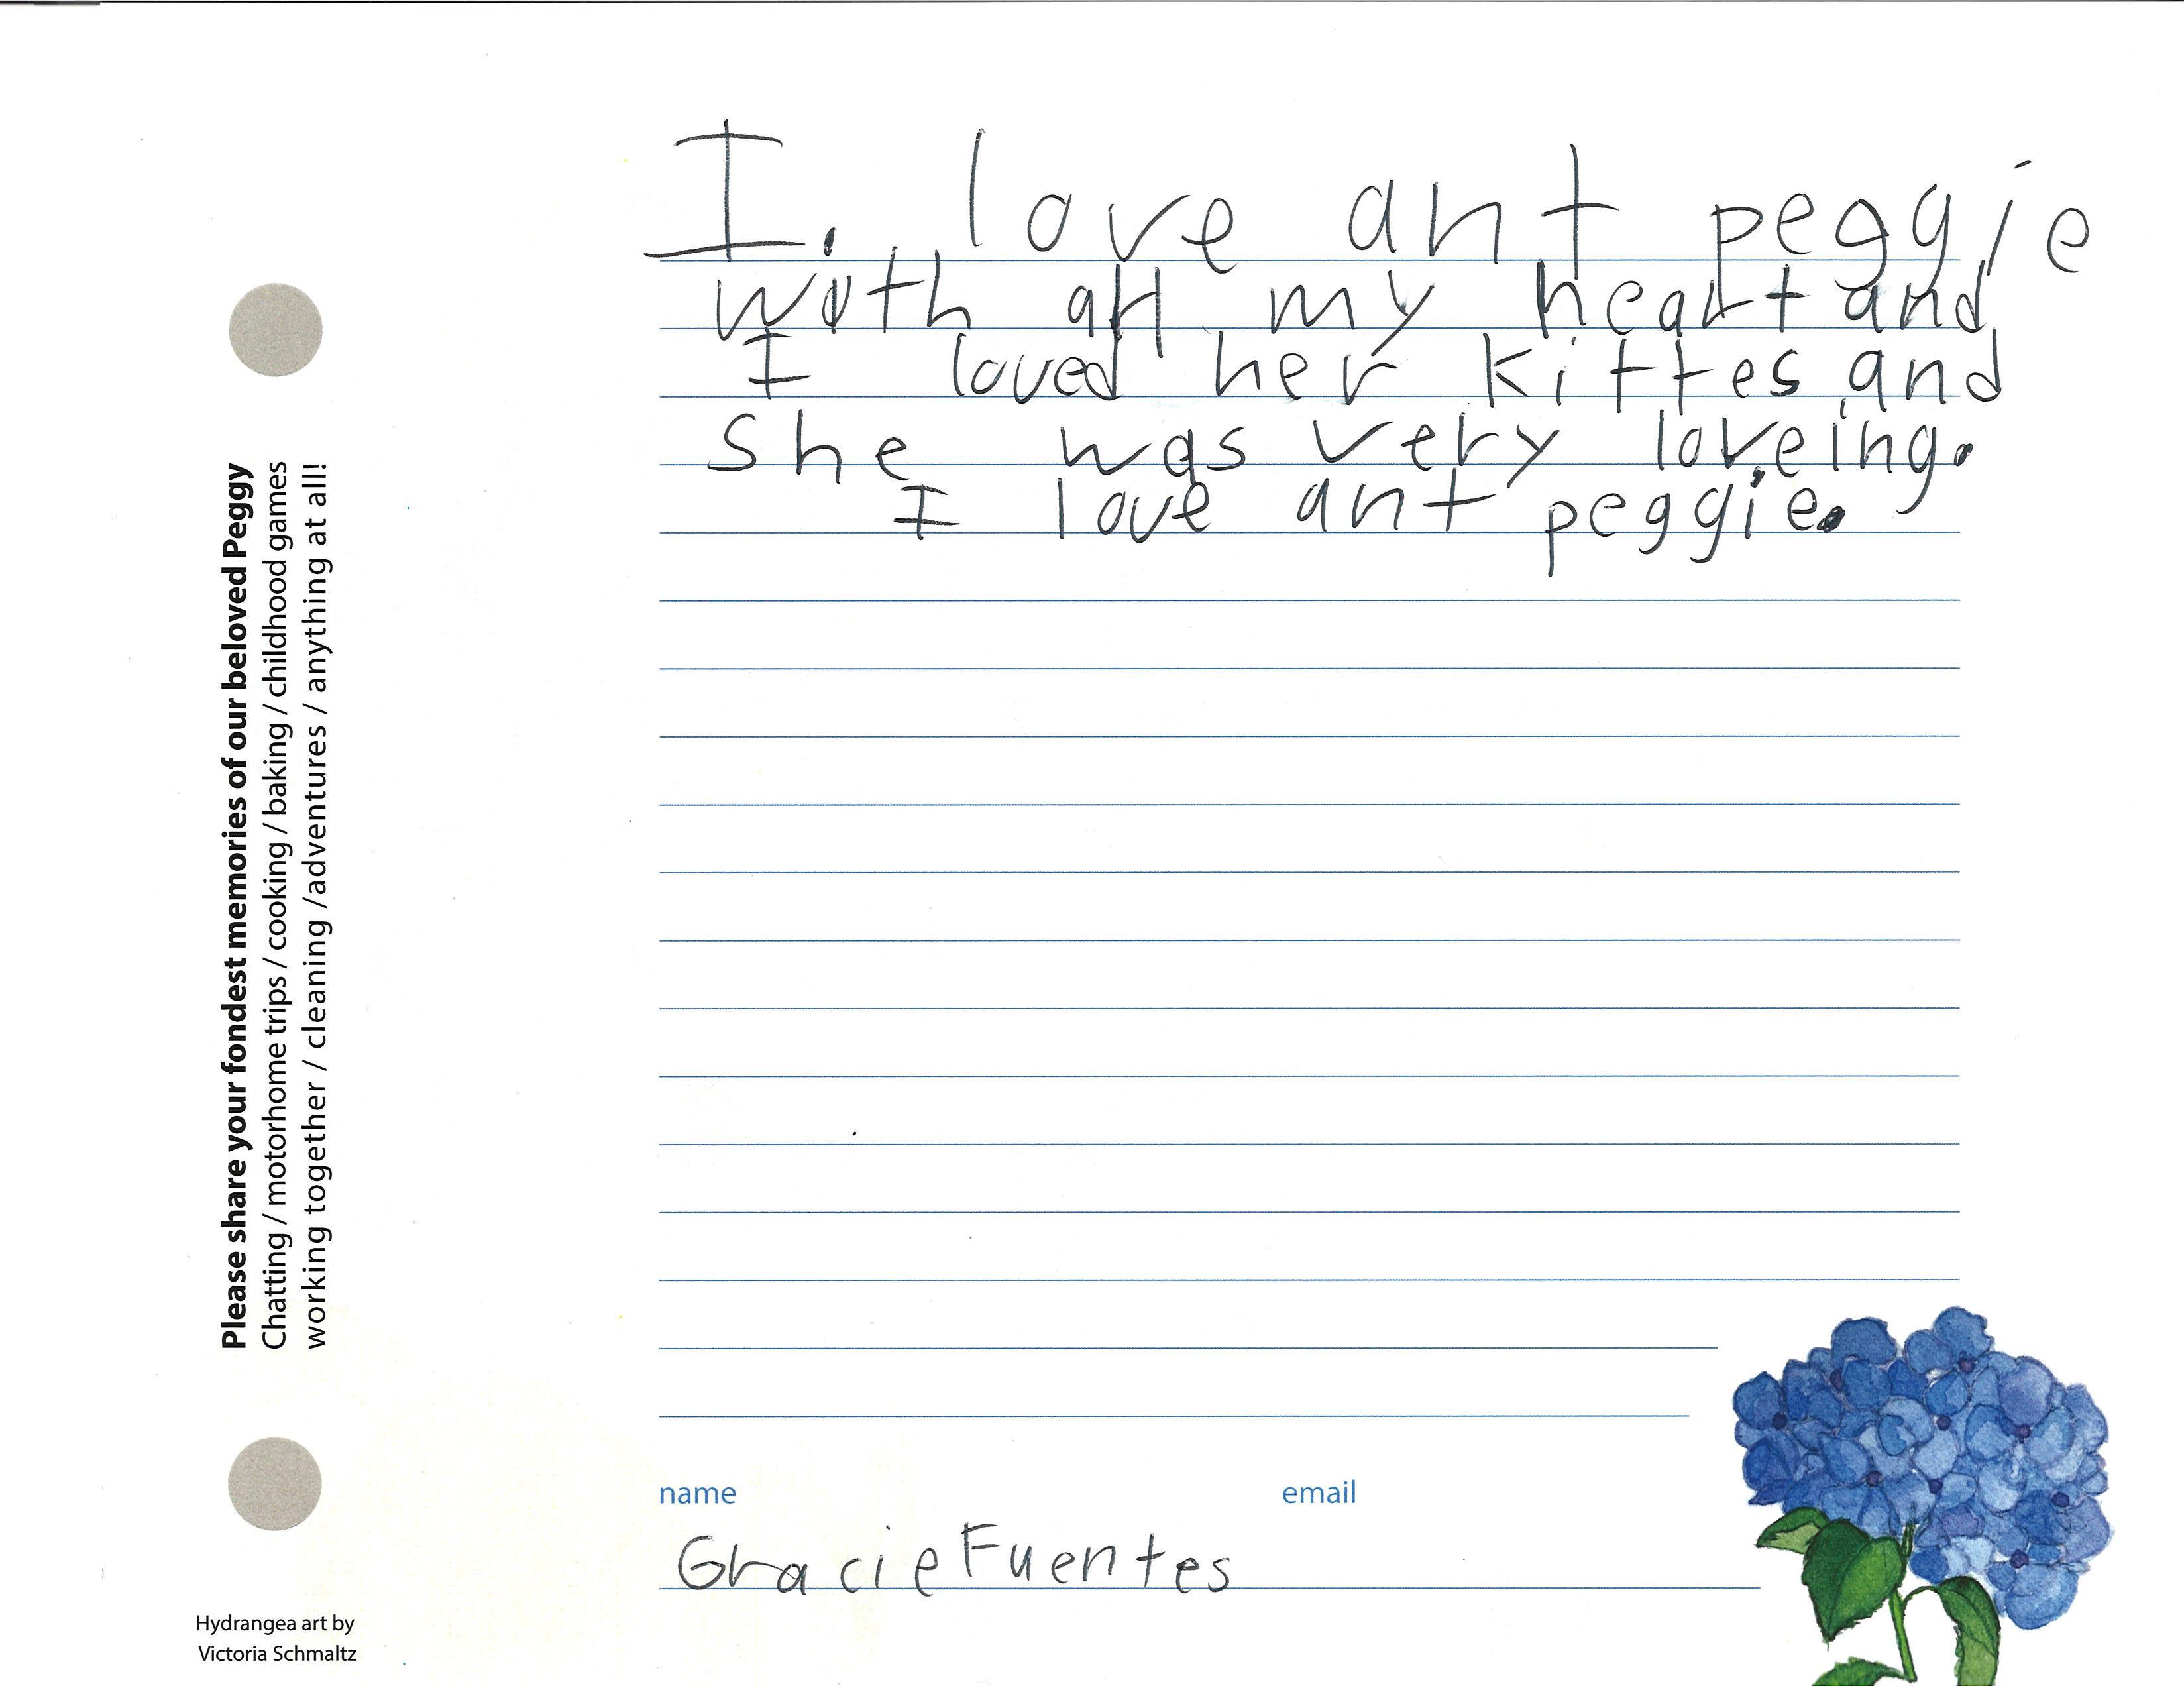 I. love ant peggie
with all my heart and
I loved her kittes and
she was very loveing.
I love ant peggie.
Please share your fondest memories of our beloved Peggy
Chatting / motorhome trips / cooking / baking / childhood games
working together / cleaning /adventures / anything at all!
name email
Gracie Fuentes
Hydrangea art by
Victoria Schmaltz